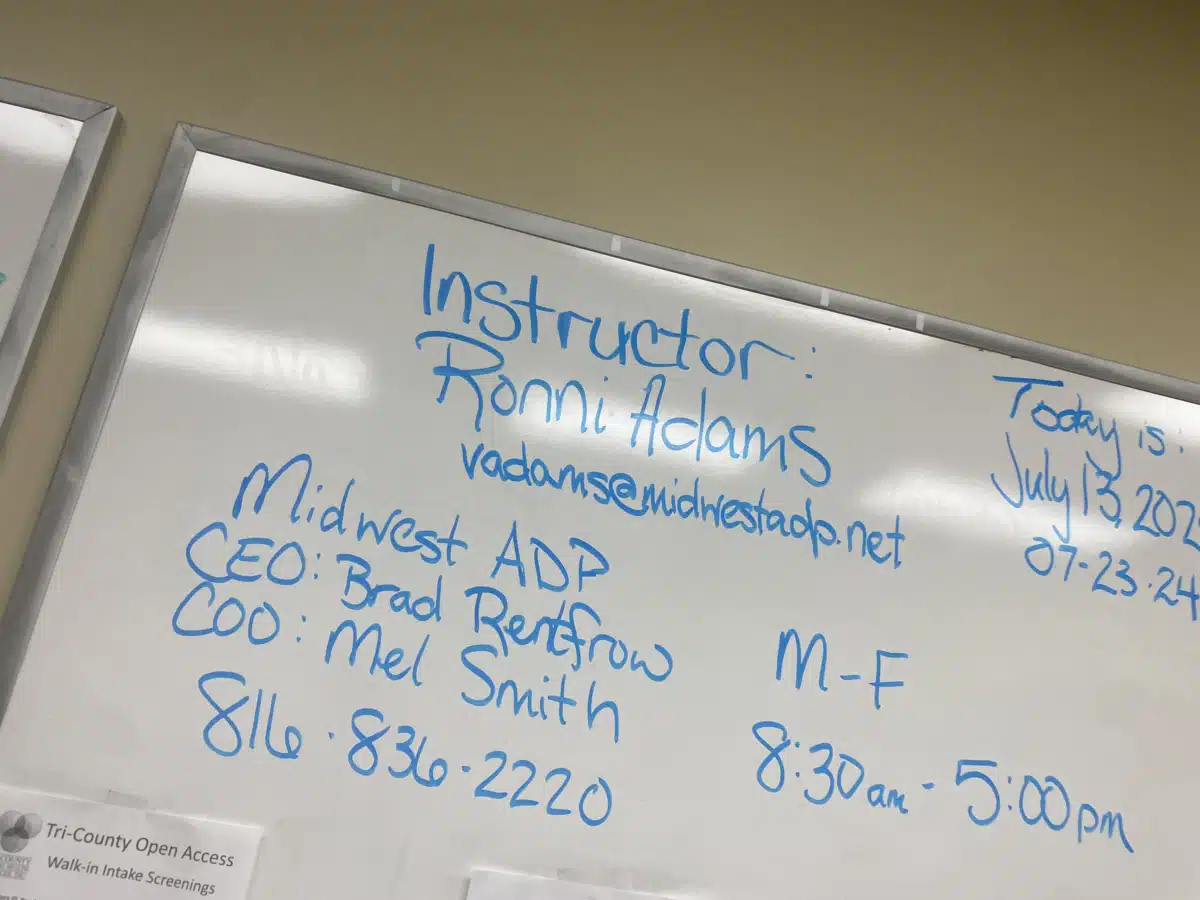 Instructor:
Ronni Adams
vadams@midwestadp.net
Today is:
July 13, 202
07-23-24
Midwest ADP
CEO: Brad Rentfrow
COO: Mel Smith
816-836-2220
M-F
8:30am - 5:00pm
Tri-County Open Access
Walk-in Intake Screenings